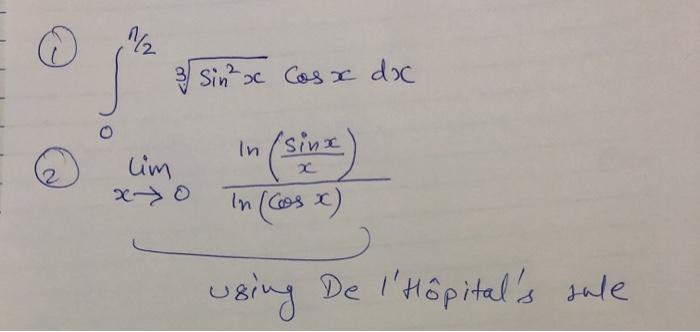 ① ∫₀^(π/2) ∛(sin²x) Cos x dx
② lim x→0 ln(sin x / x) / ln(Cos x)
using De l'Hôpital's rule